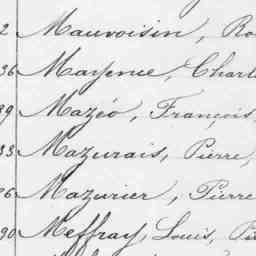 2 Mauvoisin, Ro
36 Mayence, Charl
39 Mazéo, François,
33 Mazurais, Pierre,
26 Mazurier, Pierre
90 Meffray, Louis, Pi